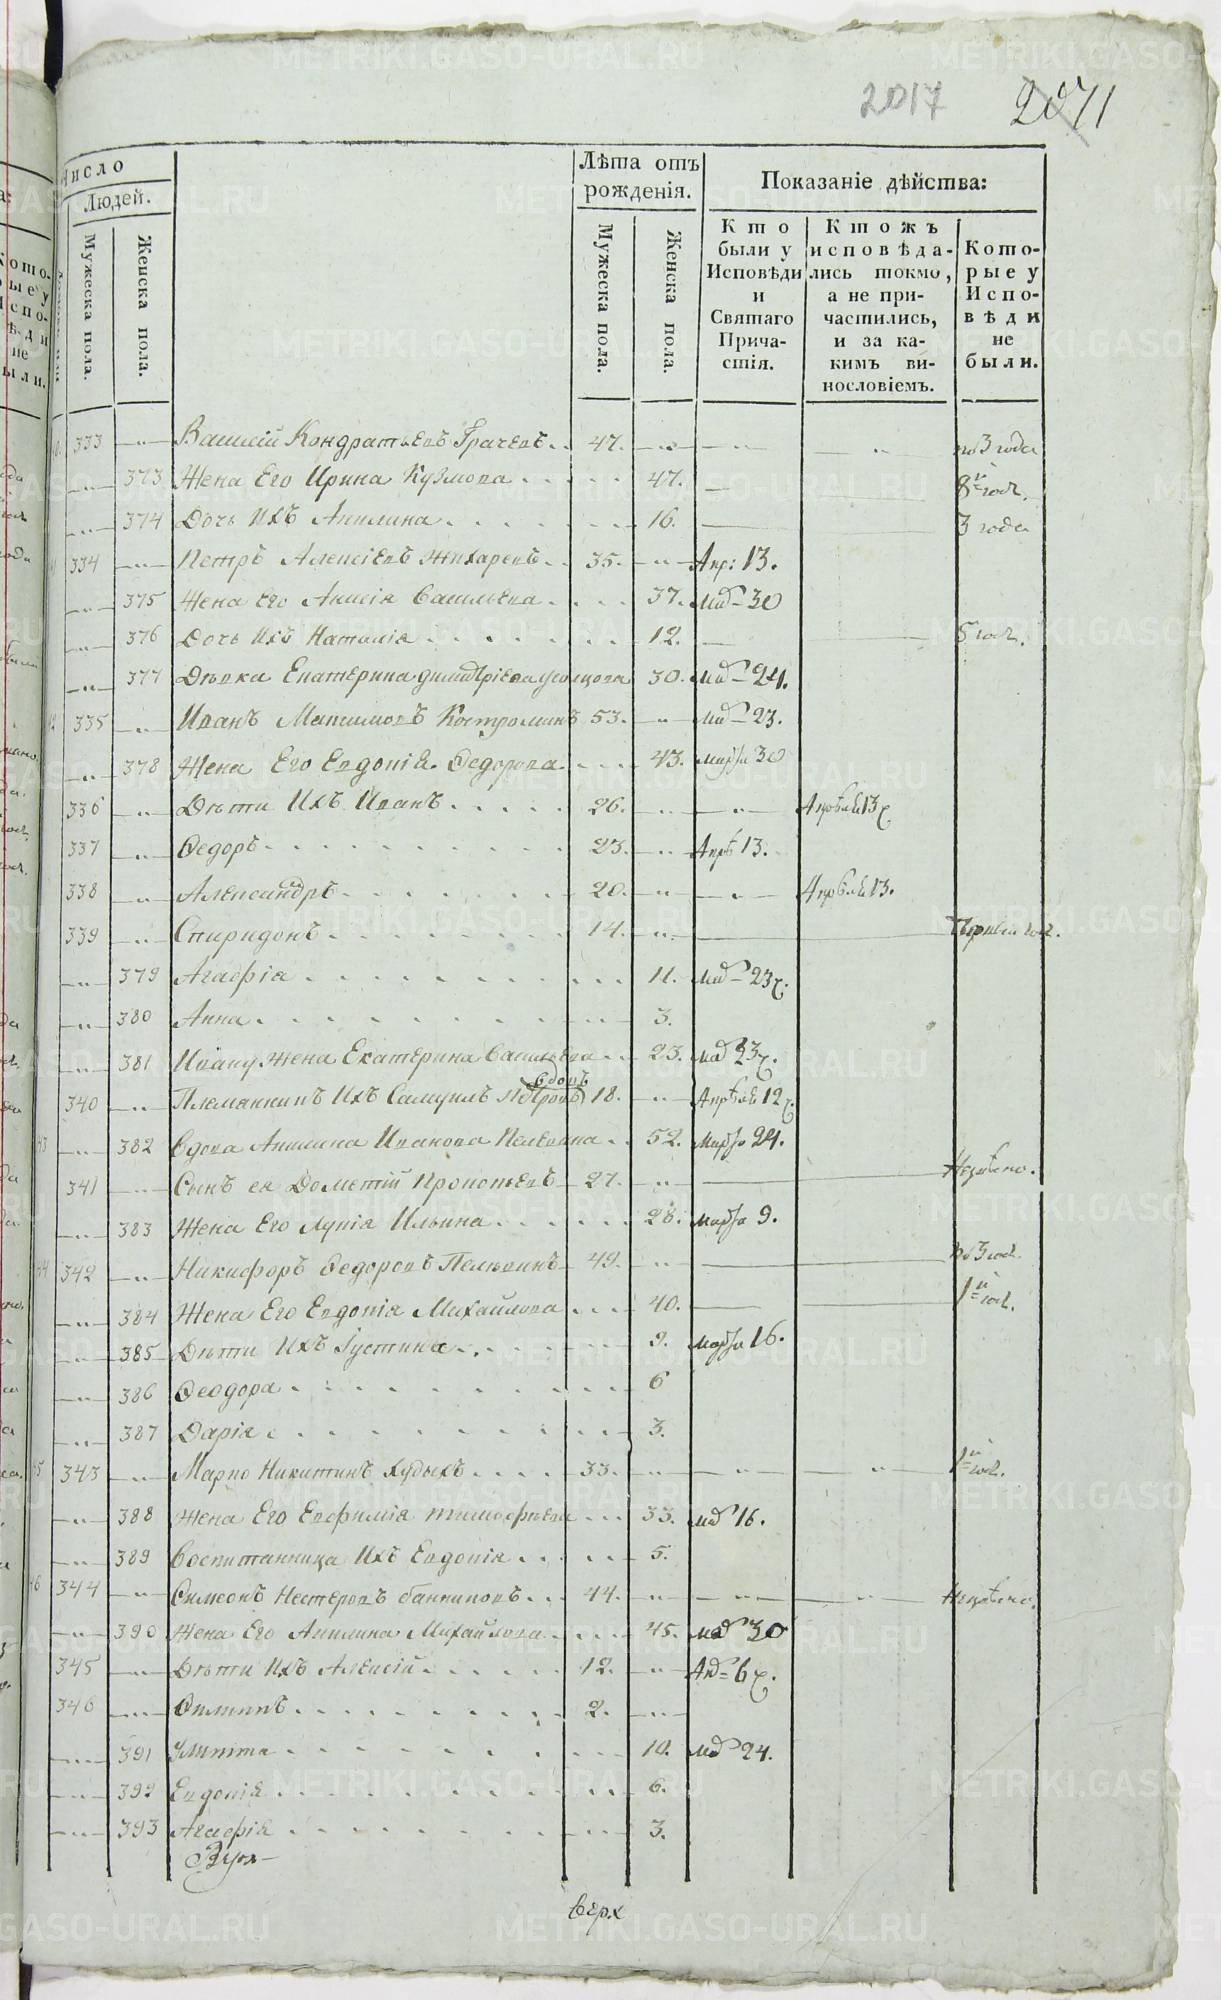 2017 2071
Число
Людей.
Мужеска пола.
Женска пола.
Лѣта отъ рожденія.
Мужеска пола.
Женска пола.
Показаніе дѣйства:
Кто были у Исповѣди и Святаго Причастія.
Ктожъ исповѣдались токмо, а не причастились, и за какимъ винословіемъ.
Которые у Исповѣди не были.
333 Василій Кондратьевъ Грачевъ 47. 3 года
373 Жена Его Ирина Кузмова 47. 8й год.
374 Дочь Ихъ Акилина 16. 3 года
334 Петръ Алексіевъ Жихаревъ 35. Апр: 13.
375 Жена Его Анисія Васильева 37. Ма 30
376 Дочь Ихъ Наталія 12. 5 год.
377 Дѣвка Екатерина 30. Ма 24.
335 Иванъ Максимовъ Костроминъ 53. Ма 23.
378 Жена Его Евдокія Ѳедорова 43. Марта 30
336 Дѣти Ихъ Иванъ 26. Апрѣля 13
337 Ѳедоръ 23. Апр 13.
338 Александръ 20. Апрѣля 13.
339 Спиридонъ 14. Первый год.
379 Агафія 11. Ма 23
380 Анна 3.
381 Ивану Жена Екатерина Васильева 23. Ма 23
340 Племянникъ Ихъ Самуилъ Петровъ вдовъ 18. Апрѣля 12
382 Вдова Акилина Иванова Пелевина 52. Марта 24.
341 Сынъ ея Дометій Прокопьевъ 27. Неизвѣсно.
383 Жена Его Лукія Ильина 28. Марта 9.
342 Никифоръ Ѳедоровъ Пелевинъ 49. 3 год.
384 Жена Его Евдокія Михайлова 40. 1й год.
385 Дѣти Ихъ Іустина 9. Марта 16.
386 Ѳеодора 6
387 Дарія 3.
343 Марко Никитинъ Худыхъ 33. 1й год.
388 Жена Его Евфимія Тимофѣева 33. Ма 16.
389 Воспитанница Ихъ Евдокія 5.
344 Симеонъ Нестеровъ Банниковъ 44. Неизвѣсно.
390 Жена Его Акилина Михайлова 45. Ма 30
345 Дѣти Ихъ Алексій 12. Ап 6
346 Филиппъ 2.
391 Улитта 10. Ма 24.
392 Евдокія 6.
393 Агафія 3.
верх